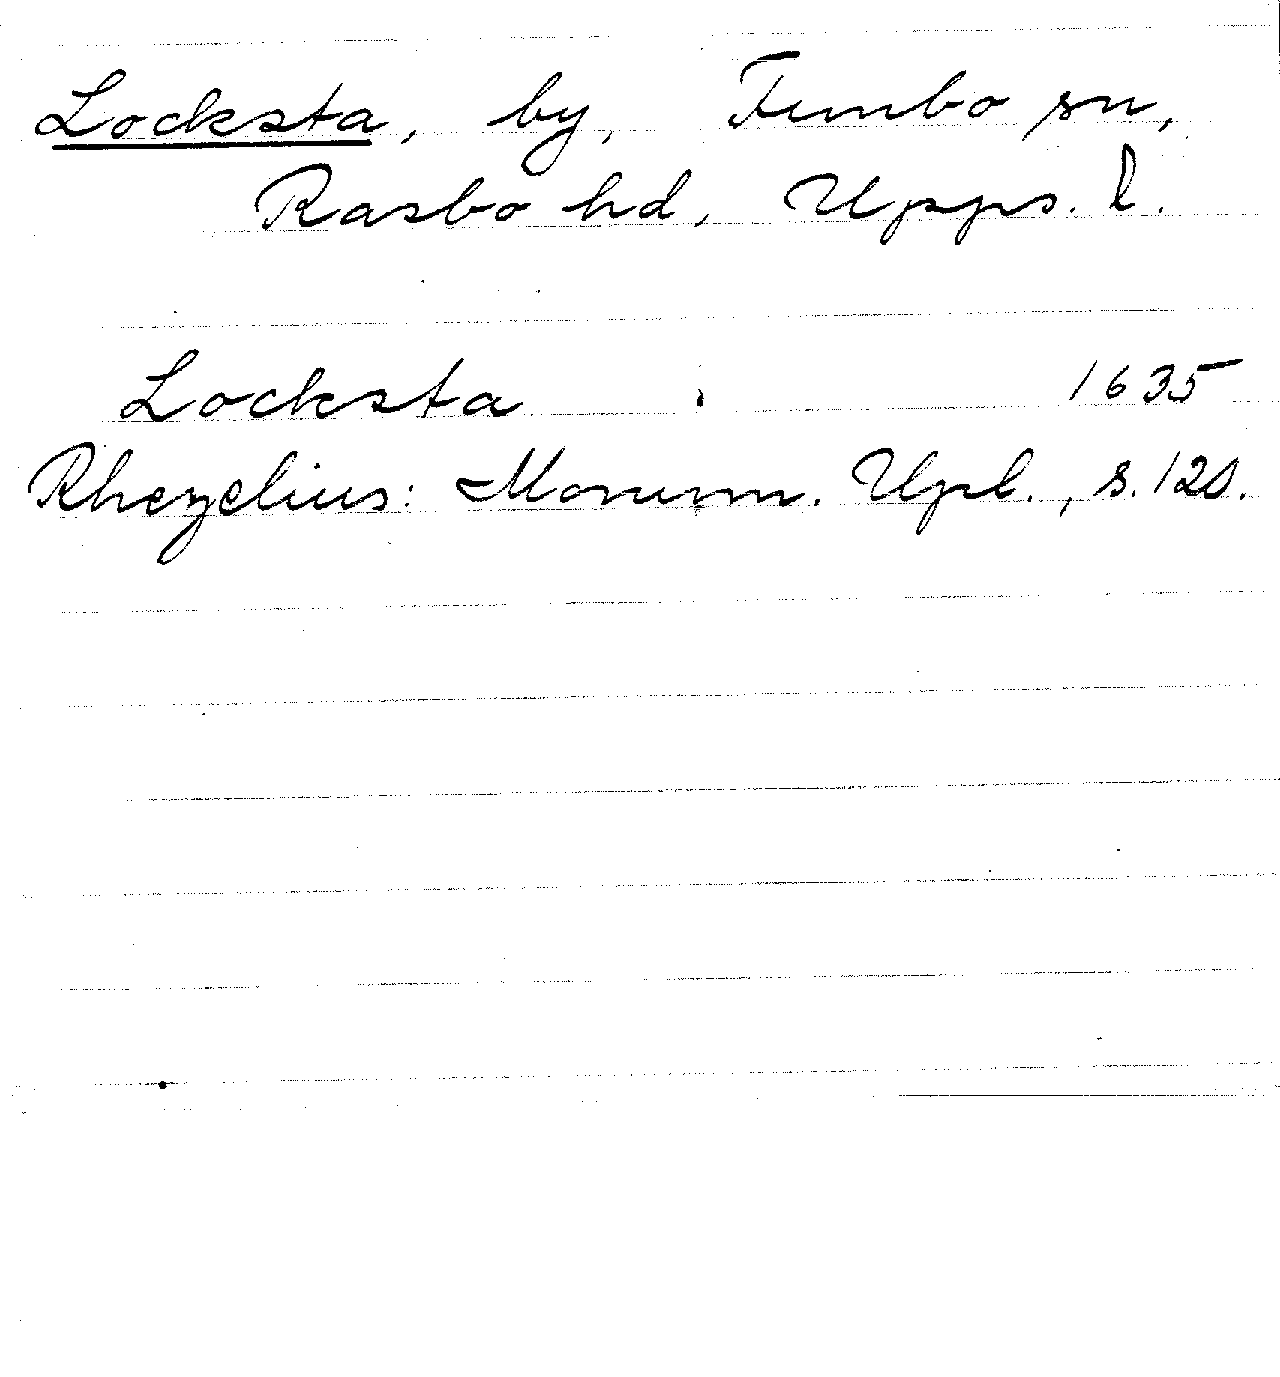 Locksta, by, Funbo sn,
Rasbo hd, Upps. l.
Locksta 1635
Rhezelius: Monum. Upl., s. 120.